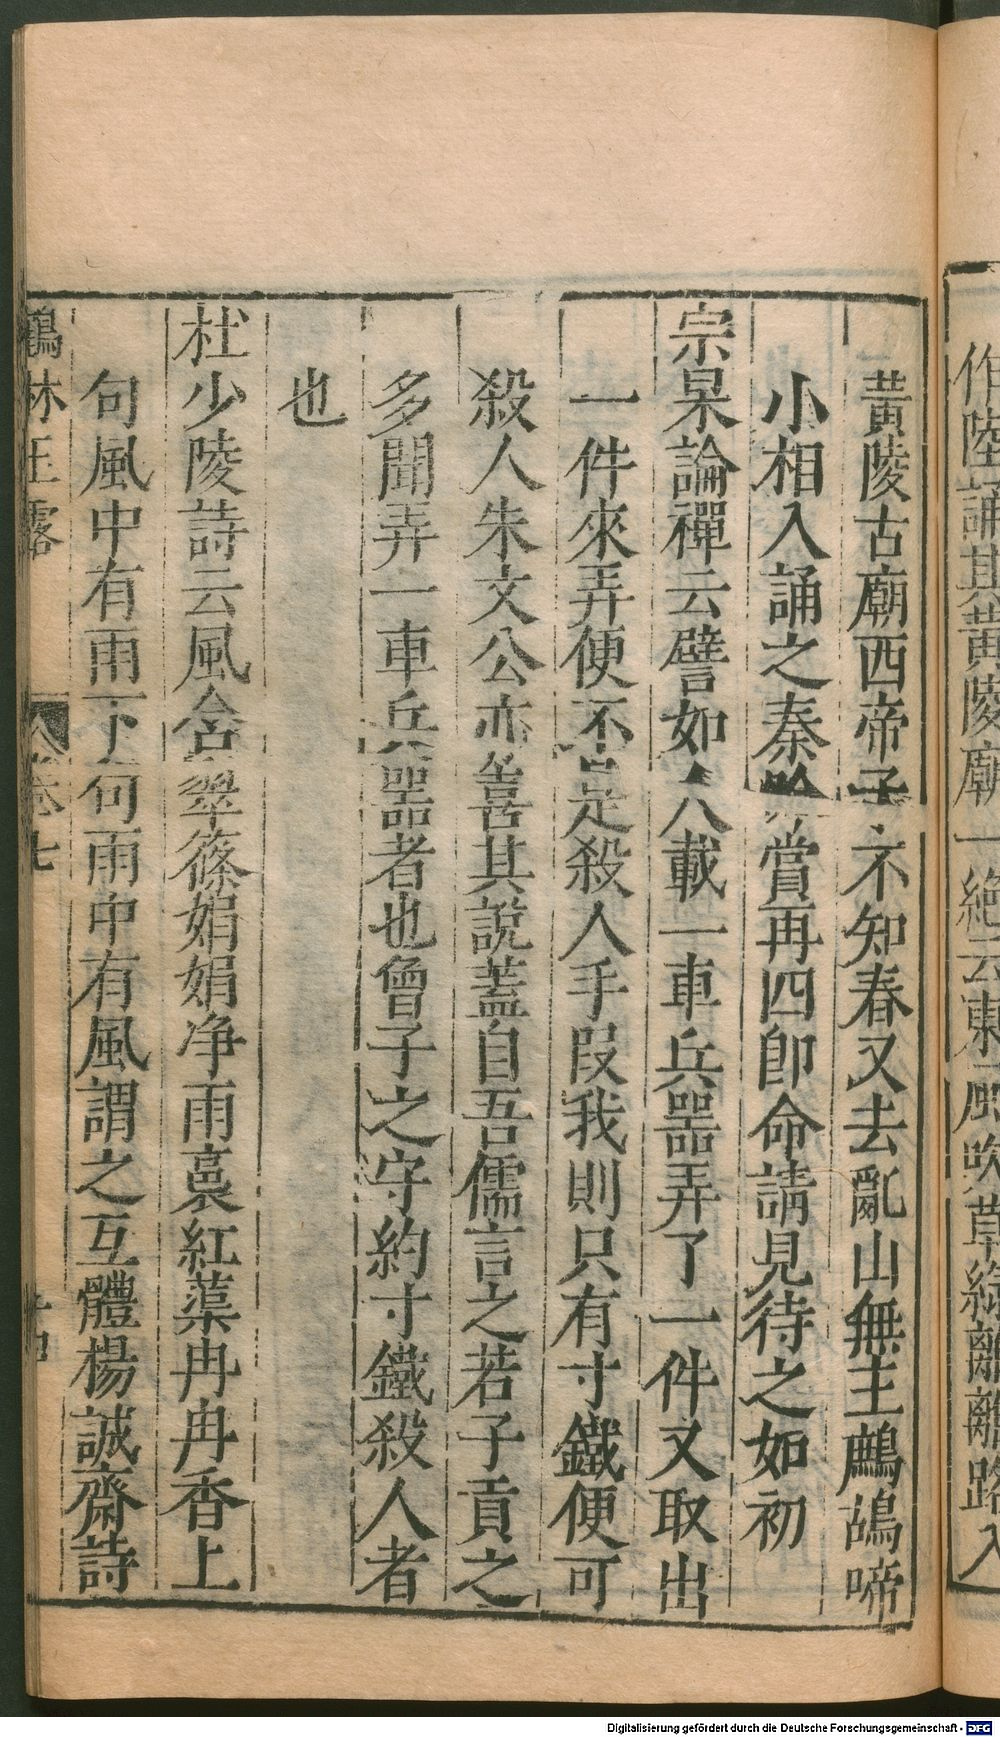 作陸誦其黃陵廟一絶云東風吹草綠離離路入
黃陵古廟西帝子不知春又去亂山無主鷓鴣啼
小相入誦之秦賞再四卽命請見待之如初
宗杲論禪云譬如人載一車兵噐弄了一件又取出
一件來弄便不是殺人手叚我則只有寸鐵便可
殺人朱文公亦善其說蓋自吾儒言之若子貢之
多聞弄一車兵噐者也曾子之守約寸鐵殺人者
也
杜少陵詩云風含翠篠娟娟净雨裛紅蕖冉冉香上
句風中有雨下句雨中有風謂之互體楊誠齋詩
鶴林玉露 卷七
Digitalisierung gefördert durch die Deutsche Forschungsgemeinschaft - DFG